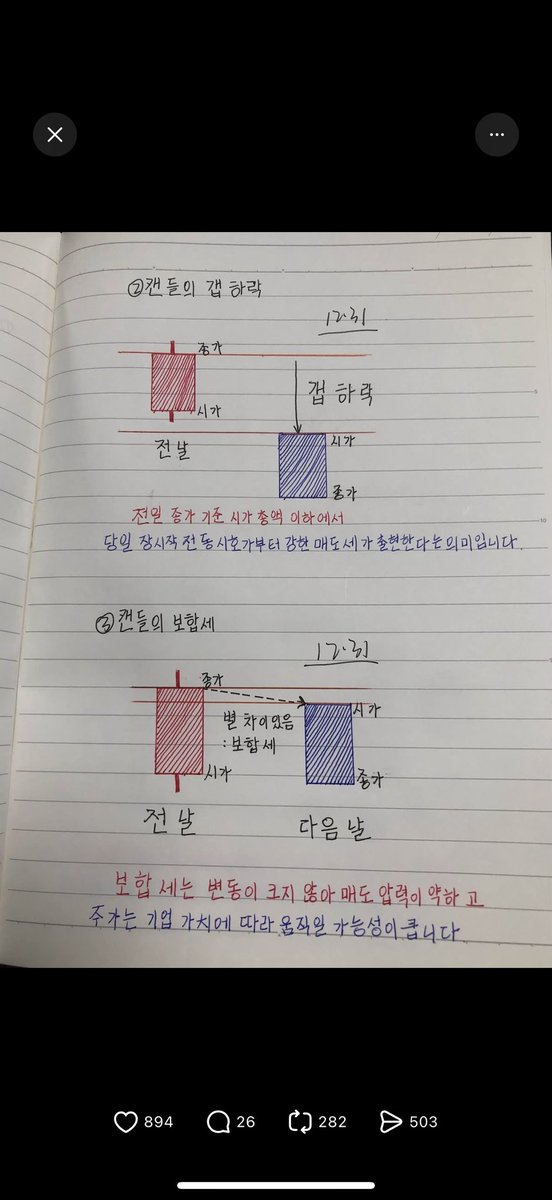 ②캔들의 갭 하락
12.31
종가
시가
전날
갭 하락
시가
종가
전일 종가 기준 시가 총액 이하에서
당일 장시작 전 동시호가부터 강한 매도세가 출현한다는 의미입니다.
③캔들의 보합세
12.31
종가
시가
전날
별 차이 있음
:보합세
시가
종가
다음 날
보합 세는 변동이 크지 않아 매도 압력이 약하 고
주가는 기업 가치에 따라 움직일 가능성이 큽니다
894 26 282 503